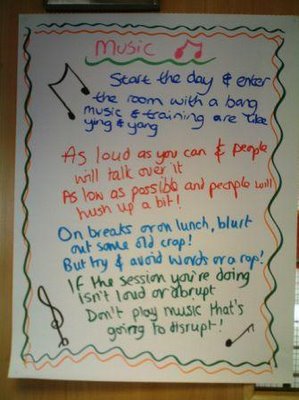 Music
Start the day & enter
the room with a bang
music & training are like
ying & yang
As loud as you can & people
will talk over it
As low as possible and people will
hush up a bit!
On breaks or on lunch, blurt
out some old crap!
But try & avoid words or a rap!
If the session you're doing
isn't loud or abrupt
Don't play music that's
going to disrupt!